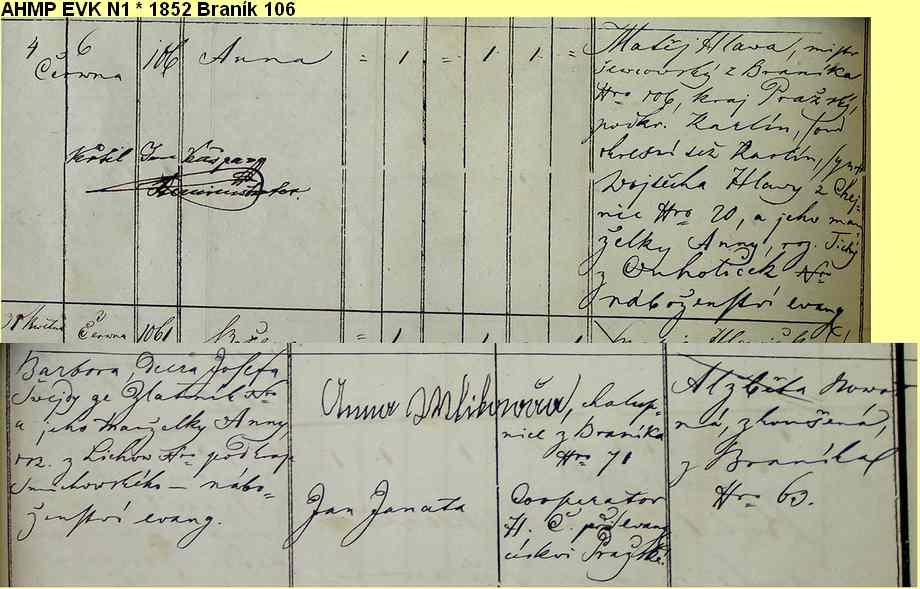 AHMP EVK N1 * 1852 Braník 106
4 6 106 Anna = 1 = 1 1 =
Června
Matěj Hlava, mistr
ševcovský z Braníka
Nro 106, kraj Pražský,
podkr. Karlín, soud
okresní též Karlín, syn
Vojtěcha Hlavy z
Nro 20, a jeho man
želky Anny, roz. Tichý
z Nro
náboženství evang
Křtil Jan Kašpar
Administrator.
Června 1061 = 1 1 1
Barbora dcera Josefa
Švejdy ze Zlatník Nro
a jeho manželky Anny
roz. z Lichow Nro podkraj
Smíchovského – nábo-
ženství evang.
Anna Mlíkovská, chalup-
nice z Braníka
Nro 71
Jan Janata
Cooperator
H. C. při evang
církvi Pražské.
Alžběta Nowo
ná, zkoušená,
z Braníka
Nro 63.